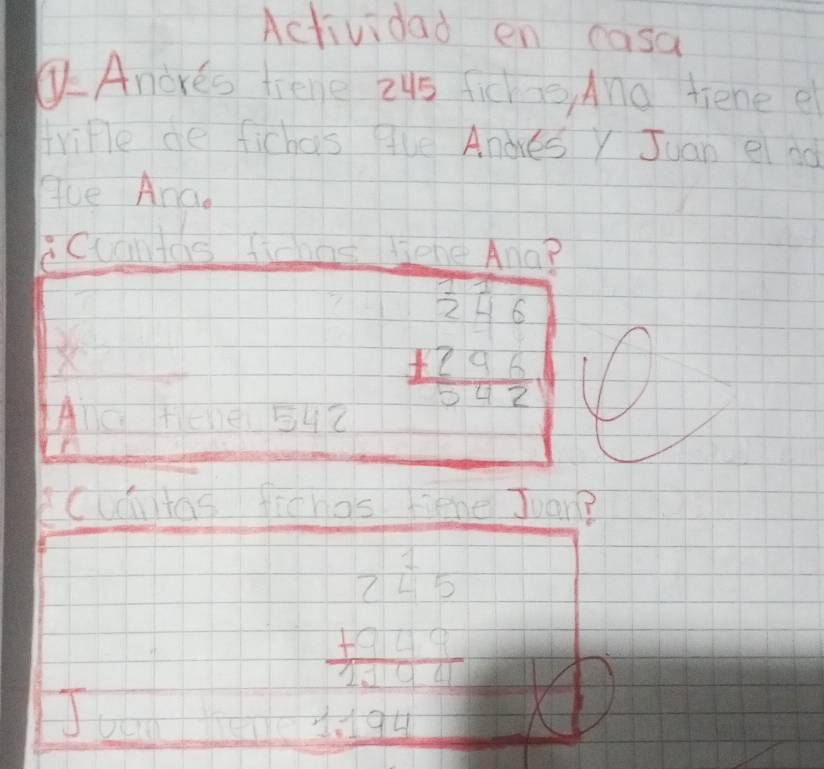 Actividad en casa
1- Andrés tiene 245 fichas, Ana tiene el
triple de fichas que Andrés y Juan el
que Ana.
¿Cuantas fichas tiene Ana?
1 1
246
x
+296
542
Ana tiene 542
¿Cuántas fichas tiene Juan?
1
245
+949
1.194
Juan tiene 1.194